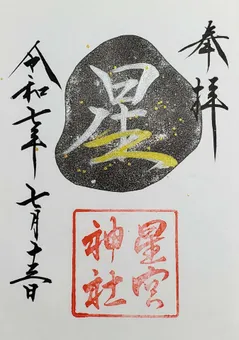 奉拝
星
星宮
神社
令和七年 七月十三日